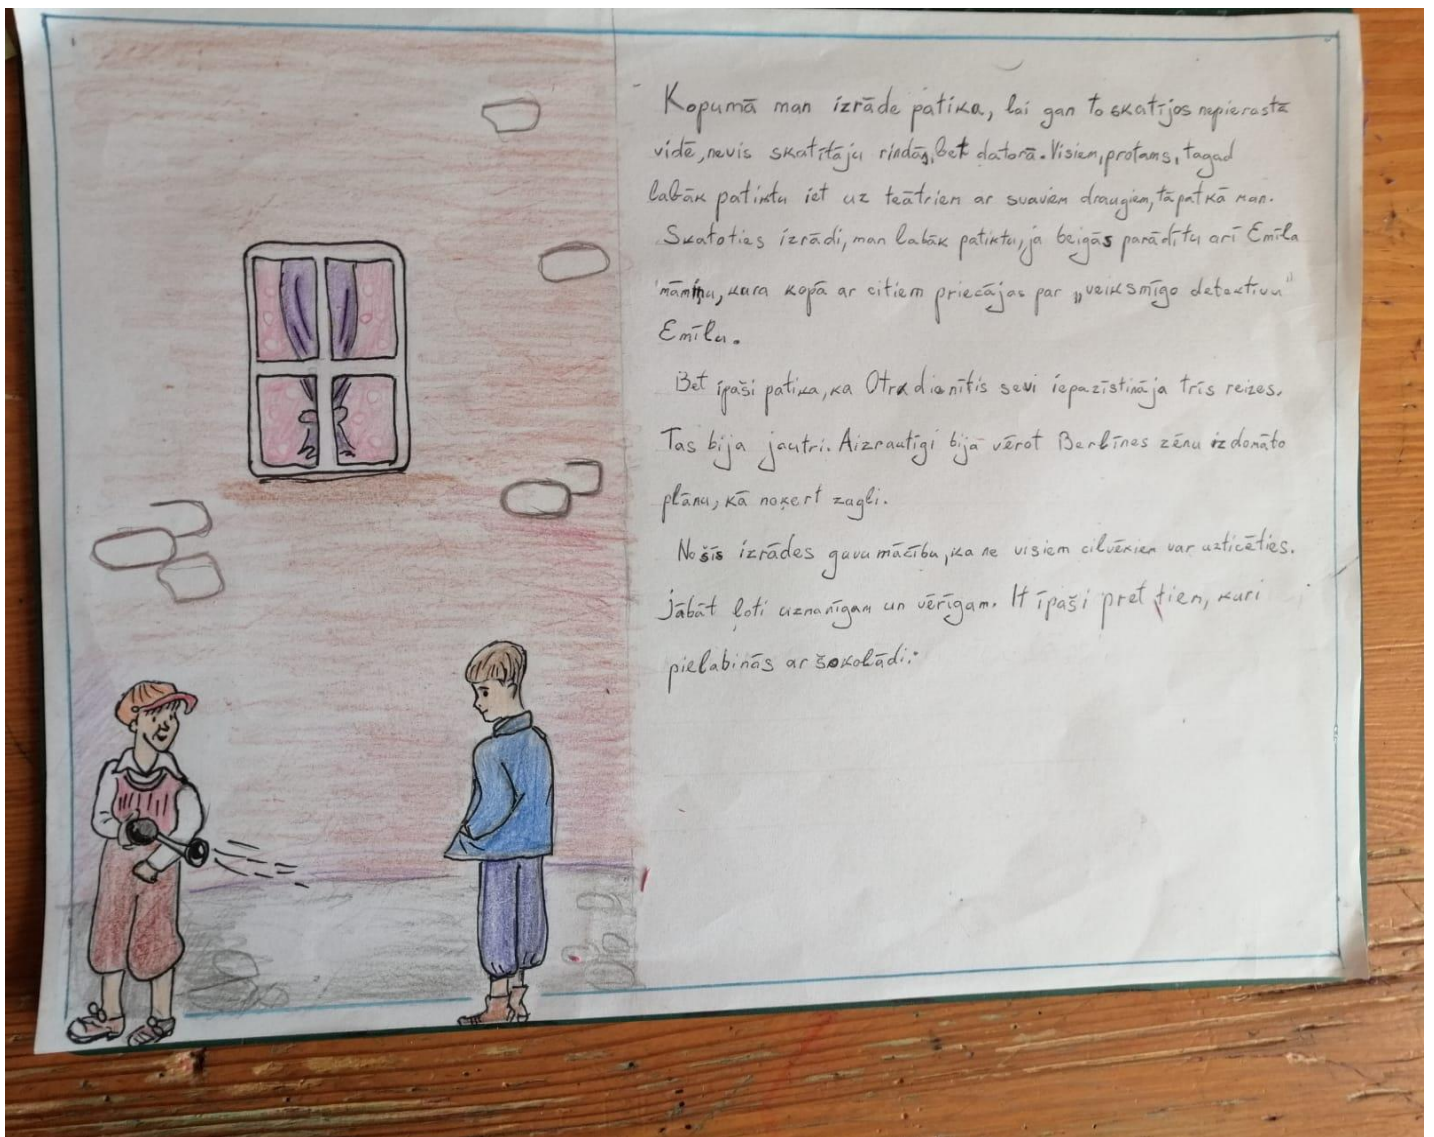 Kopumā man izrāde patika, lai gan to skatījos nepierastā
vidē, nevis skatītāju rindās, bet datorā. Visiem, protams, tagad
labāk patiktu iet uz teātriem ar saviem draugiem, tāpatkā man.
Skatoties izrādi, man labāk patiktu, ja beigās parādītu arī Emīla
māmiņu, kura kopā ar citiem priecājas par „veiksmīgo detektīvu"
Emīlu.
Bet īpaši patika, ka Otrdienītis sevi iepazīstināja trīs reizes.
Tas bija jautri. Aizrautīgi bija vērot Berlīnes zēnu izdomāto
plānu, kā noķert zagli.
No šīs izrādes guvu mācību, ka ne visiem cilvēkiem var uzticēties.
Jābāt ļoti uzmanīgam un vērīgam. It īpaši pret tiem, kuri
pielabinās ar šokolādi.